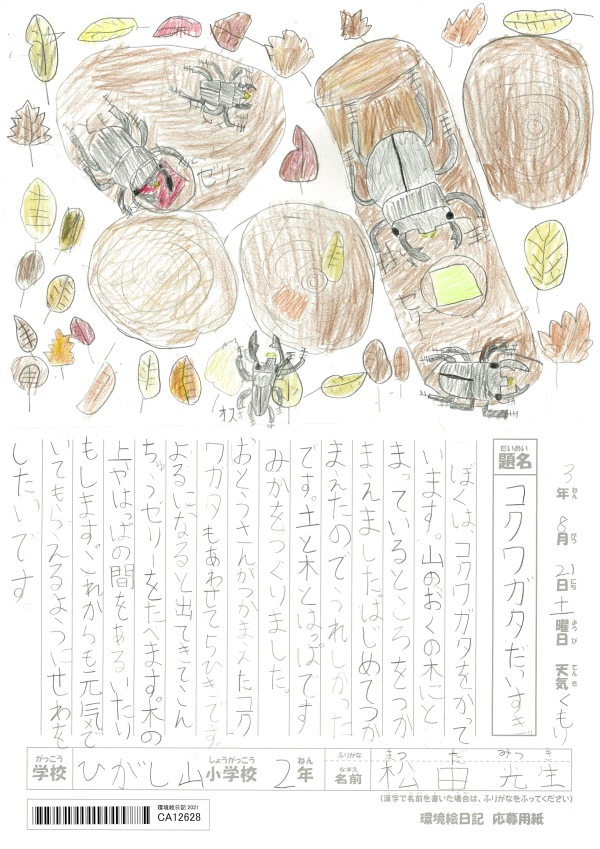 ゼリー
オス
3年 8月 21日 土曜日 天気 くもり
ねん がつ にち ようび てんき
だいめい
題名
コクワガタだいすき
ぼくは、コクワガタをかって
います。山のおくの木にと
まっているところをつか
まえました。はじめてつか
まえたのでうれしかった
です。土と木とはっぱです
みかをつくりました。
おとうさんがつかまえたコク
ワガタもあわせて5ひきです。
よるになると出てきてこん
ちゅうゼリーをたべます。木の
上やはっぱの間をあるいたり
もします。これからも元気で
いてもらえるようにせわを
したいです。
がっこう しょうがっこう ねん ふりがな まつ だ みつ き
学校 ひがし山 小学校 2年 なまえ 名前 松田 光生
(漢字で名前を書いた場合は、ふりがなをふってください)
環境絵日記 2021
CA12628
環境絵日記 応募用紙